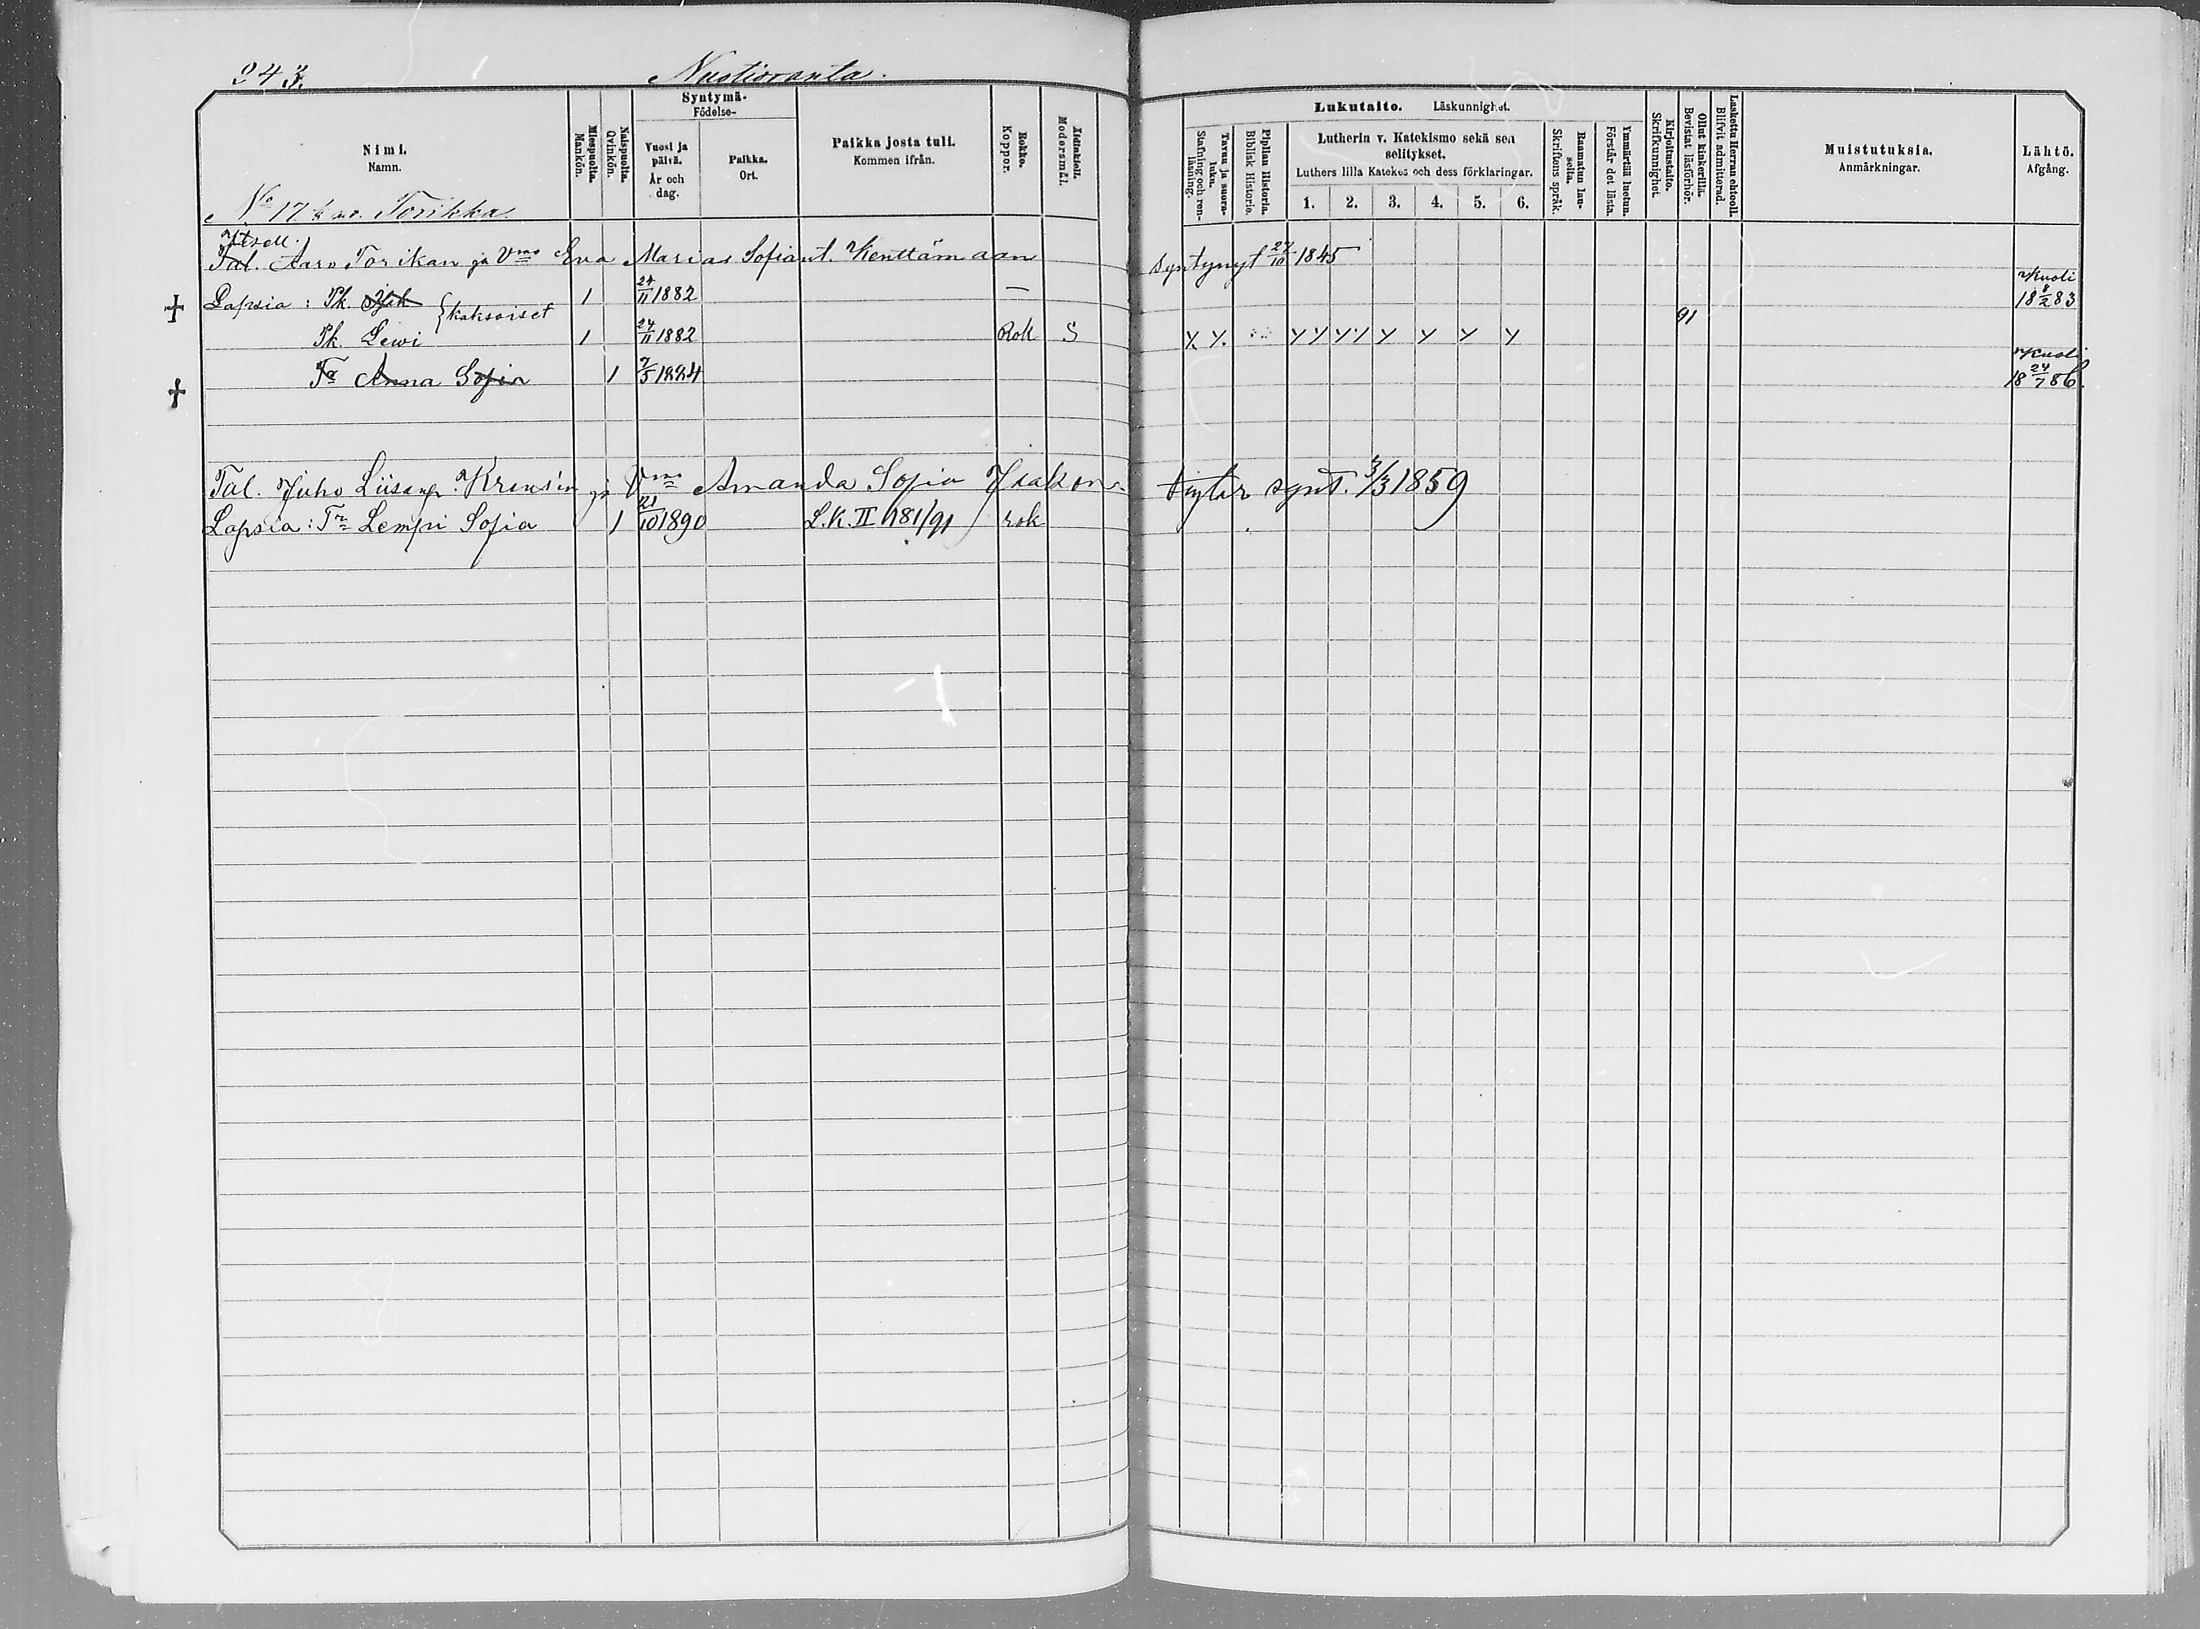 243.
Nuotioranta.
Nimi.
Namn.
Miespuolta.
Mankön.
Naispuolta.
Qvinkön.
Syntymä-
Födelse-
Vuosi ja
päivä.
År och
dag.
Paikka.
Ort.
Paikka josta tuli.
Kommen ifrån.
Rokko.
Koppor.
Äidinkieli.
Modersmål.
Lukutaito. Läskunnighet.
Tavuu ja suora-
luku.
Stafning och ren-
läsning.
Piplian Historia.
Biblisk Historie.
Lutherin v. Katekismo sekä sen
selitykset.
Luthers lilla Katekes och dess förklaringar.
1. 2. 3. 4. 5. 6.
Raamatun lau-
seita.
Skriftens språk.
Ymmärtää luetun.
Förstår det lästa.
Kirjoitustaito.
Skrifkunnighet.
Ollut kinkerillä.
Bevistat läsförhör.
Laskettu Herran ehtooll.
Blifvit admitterad.
Muistutuksia.
Anmärkningar.
Lähtö.
Afgång.
No 17 Torikka.
Itsell.
Tal. Aaro Torikan ja Vmo Eva Maria Sofiant. Kenttämaan syntynyt 27/10 1845
Lapsia: Pk. {kaksoiset 1 24/11 1882 — Kuoli 18 8/2 83
Pk. Lewi 1 24/11 1882 Rok S 91
Tr Anna Sofia 1 7/5 1884 Kuoli 18 24/7 86.
Tal. Juho Liisanp. Krensin ja Vmo Amanda Sofia Isakon- tytär synt. 3/3 1859
Lapsia: Tr Lempi Sofia 1 21/10 1890 L.K. II 181/91 rok